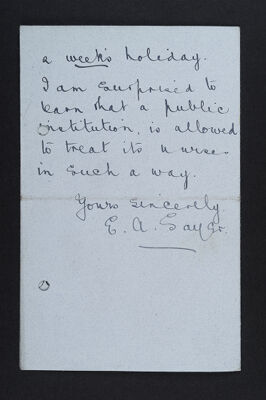 a week's holiday.
I am surprised to
learn that a public
institution, is allowed
to treat its nurses
in such a way.
Yours sincerely
E. A.